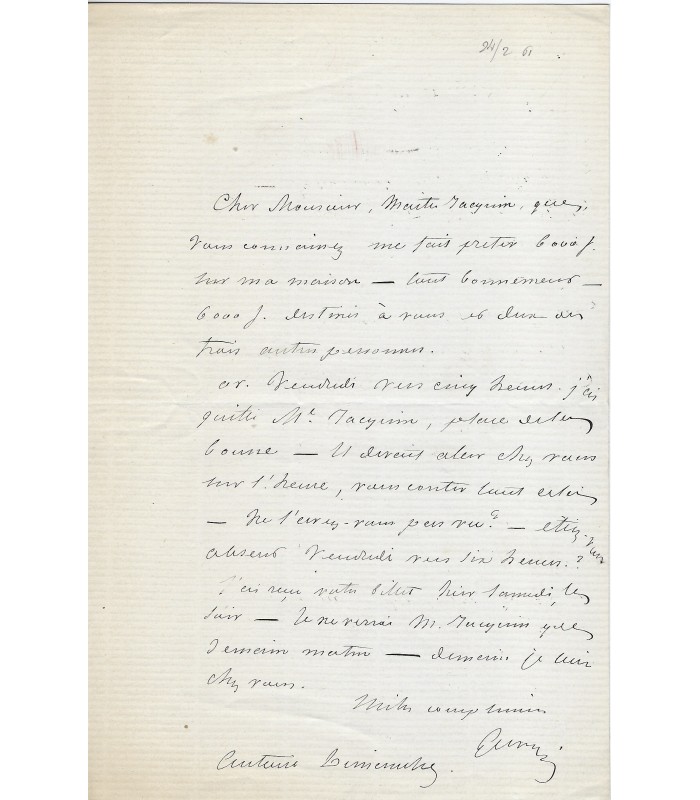 24/2 61
Cher Monsieur, Maître Jacquin, que
vous connaissez me fait preter 6000 f.
sur ma maison — tout bonnement —
6000 f. destinés à vous et deux ou
trois autres personnes.
or. Vendredi vers cinq heures. j'ai
quitté Me Jacquin, place de la
bourse — Il devait aler chez vous
sur l'heure, vous conter tout cela
— ne l'avez-vous pas vu? — étiez-vous
absent Vendredi vers six heures.?
J'ai reçu votre billet hier Samedi, le
soir — Je ne verrai M. Jacquin que
demain matin — demain je suis
chez vous.
Mille compliments
Centaine Dimanche.